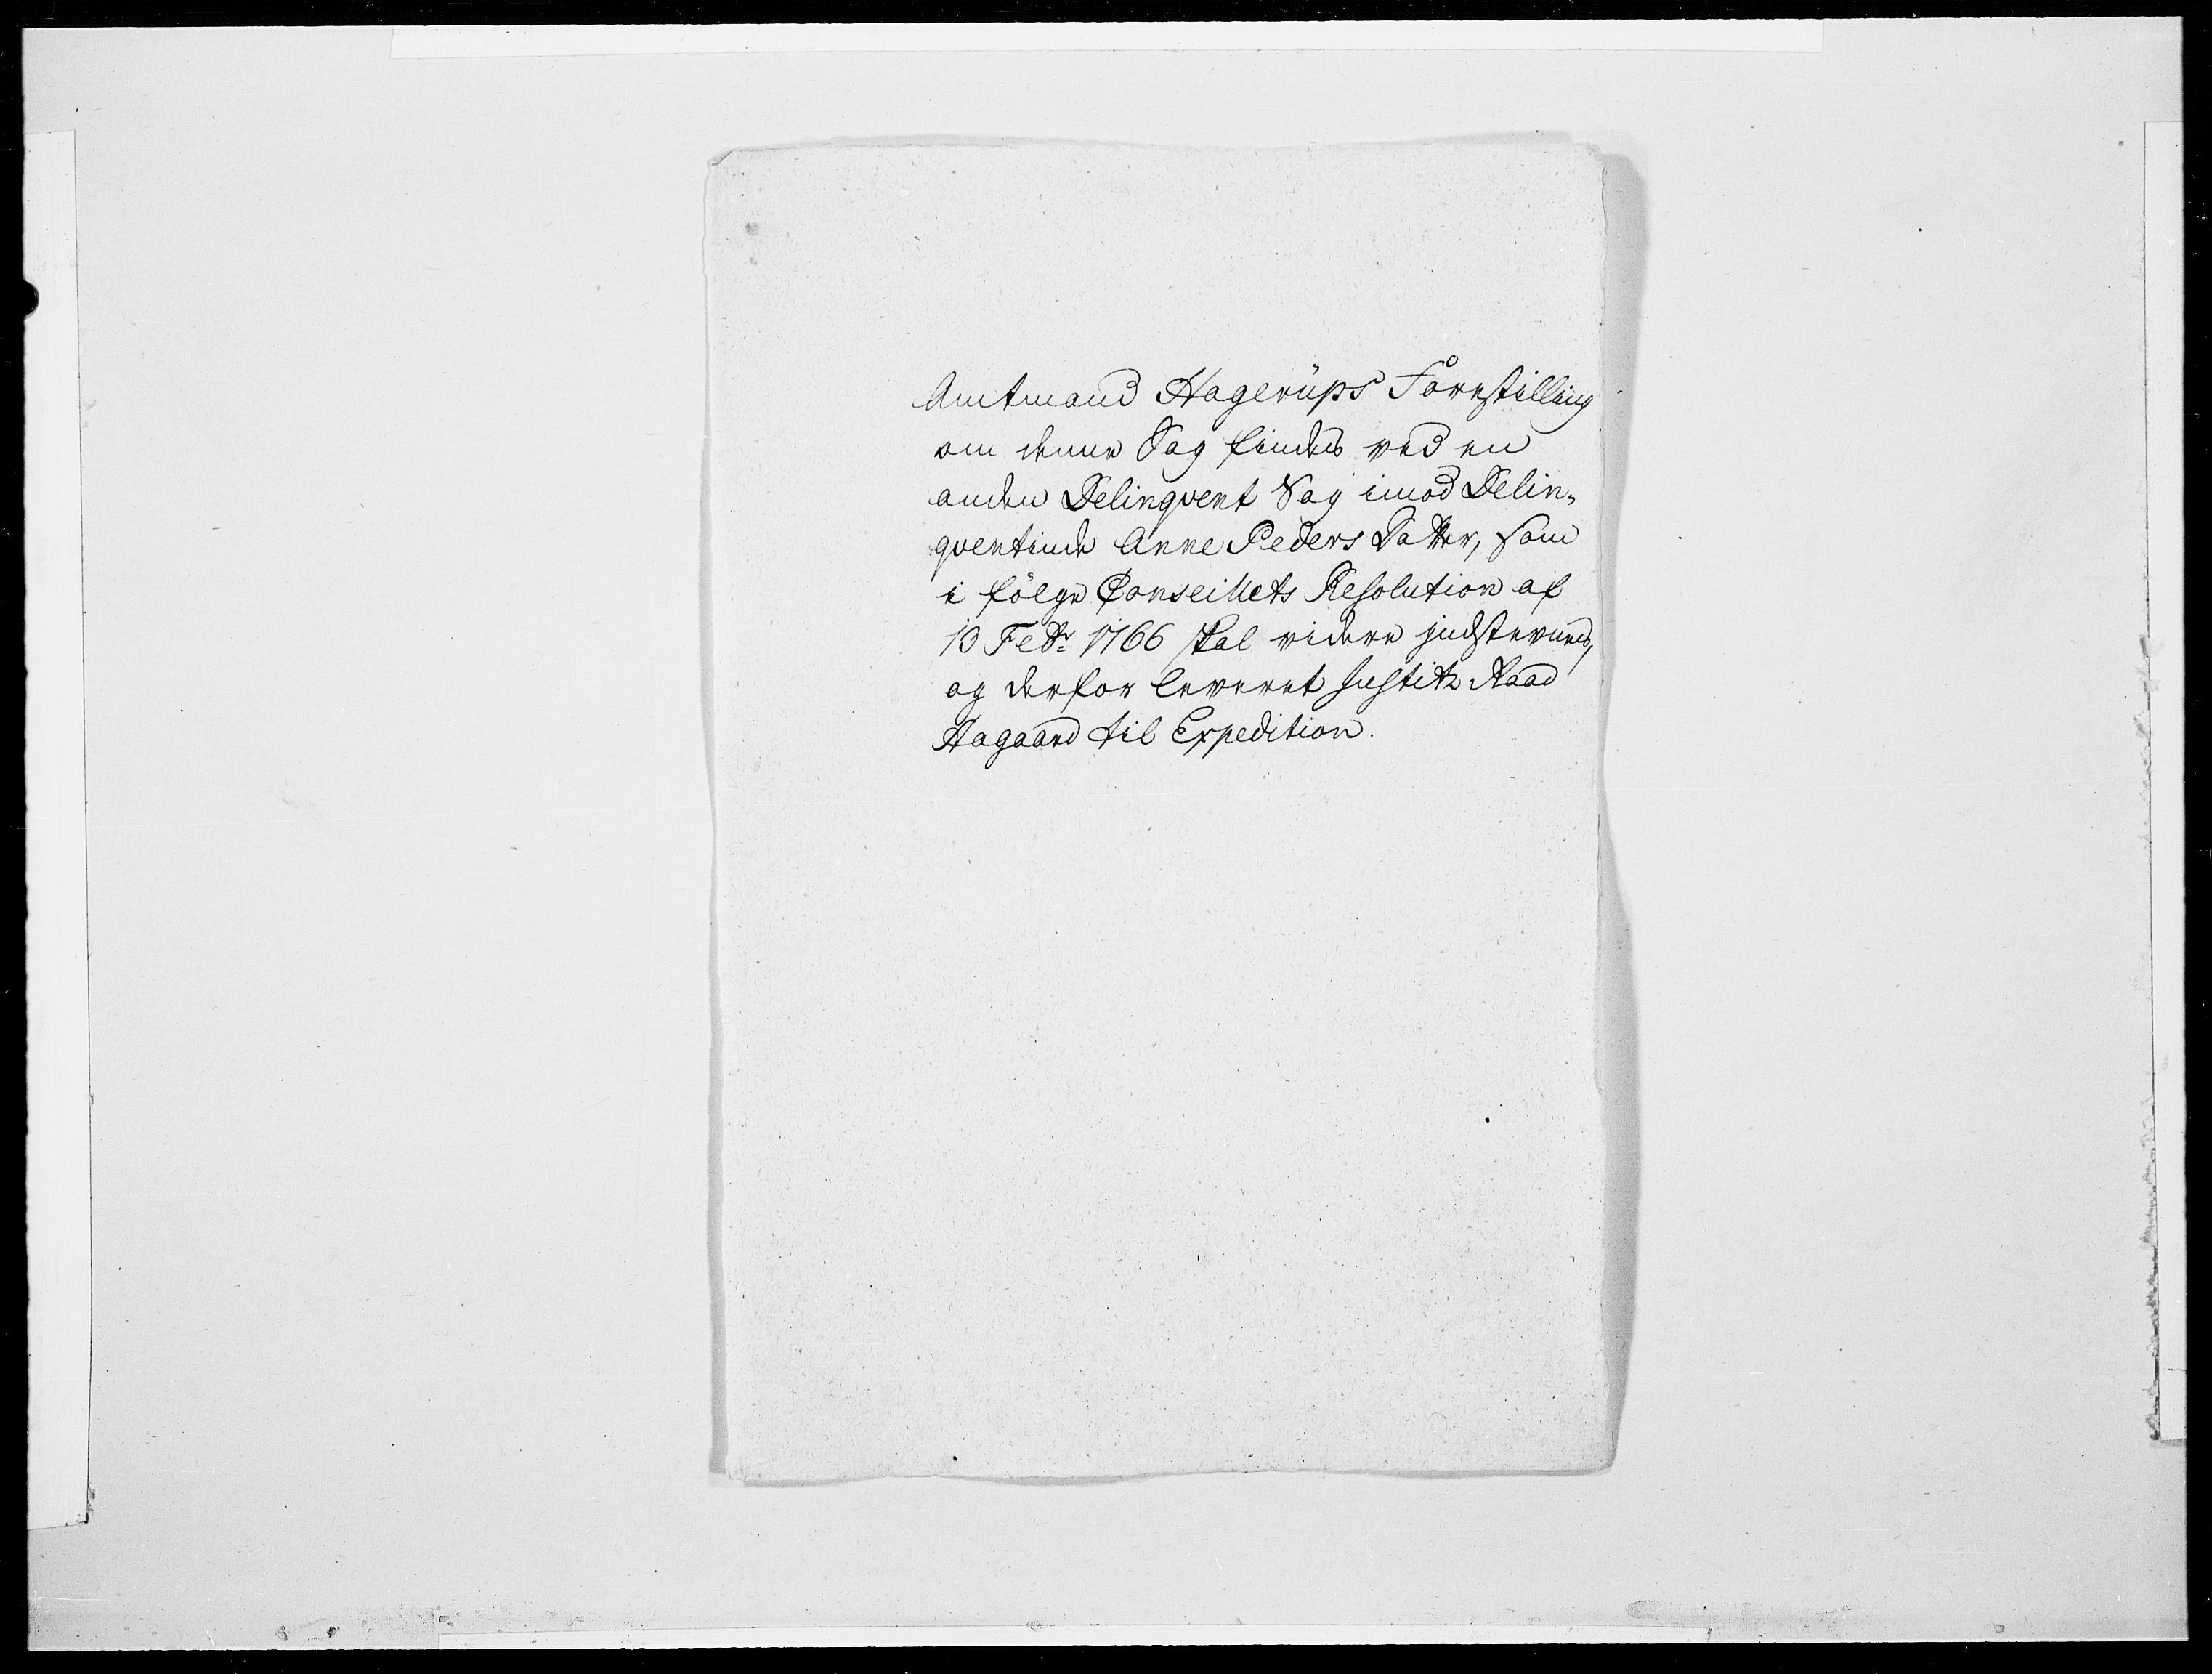 Amtmand Hagerüps Forestilling
om denne Sag findes ved en
anden Delinqvent Sag imod Delin-
qventinde Anne Peders Datter, som
i følge Conseillets Resolution af
13 Febr: 1766 skal videre indstevnes,
og derfor leveret Justitz Raad
Aagaard til Expedition.